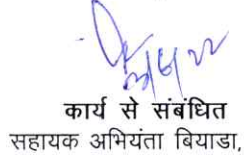 कार्य से संबंधित
सहायक अभियंता बियाडा,